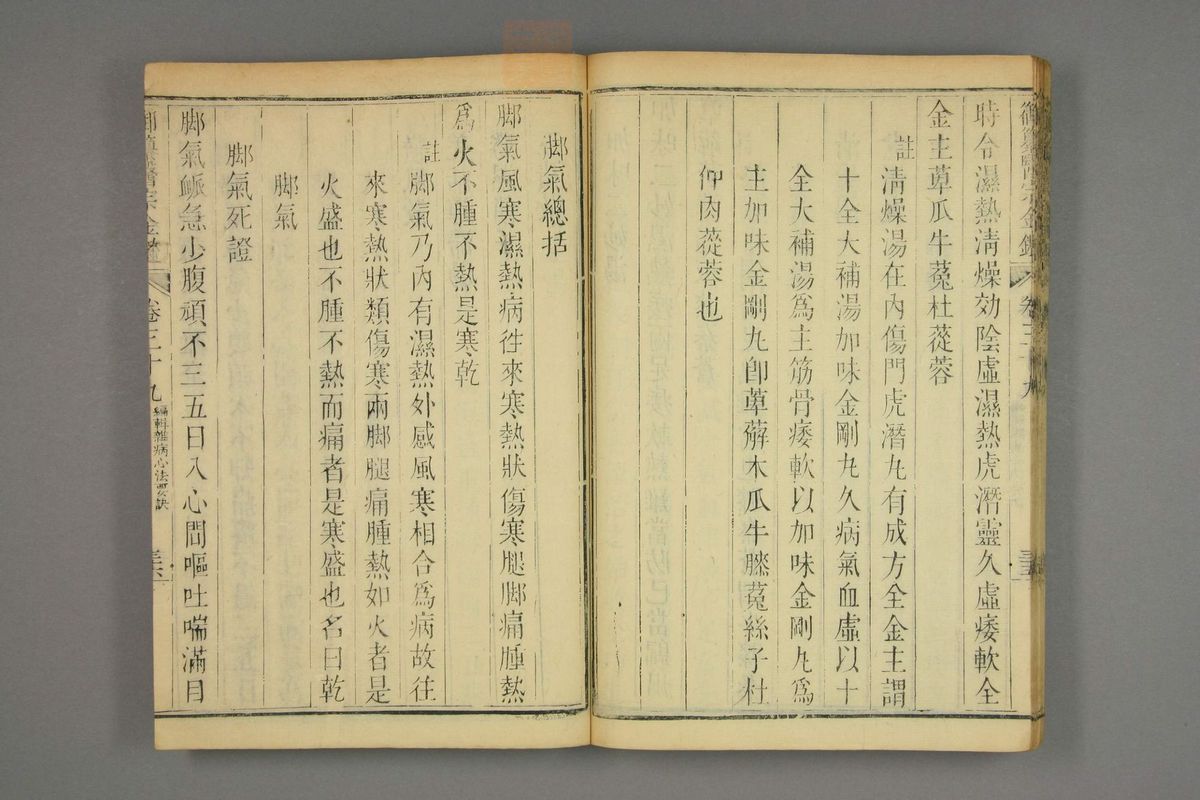 御纂醫宗金鑑 卷三十九
時令濕熱清燥効陰虛濕熱虎潛靈久虛痿軟全
金主萆瓜牛菟杜蓯蓉
註
清燥湯在內傷門虎潛丸有成方全金主謂
十全大補湯加味金剛丸久病氣血虛以十
全大補湯爲主筋骨痿軟以加味金剛丸爲
主加味金剛丸卽萆薢木瓜牛膝菟絲子杜
仲肉蓯蓉也
脚氣總括
脚氣風寒濕熱病徃來寒熱狀傷寒腿脚痛腫熱
爲火不腫不熱是寒乾
註
脚氣乃內有濕熱外感風寒相合爲病故往
來寒熱狀類傷寒兩脚腿痛腫熱如火者是
火盛也不腫不熱而痛者是寒盛也名曰乾
脚氣
脚氣死證
脚氣衇急少腹頑不三五日入心間嘔吐喘滿目
御纂醫宗金鑑 卷三十九 編輯雜病心法要訣